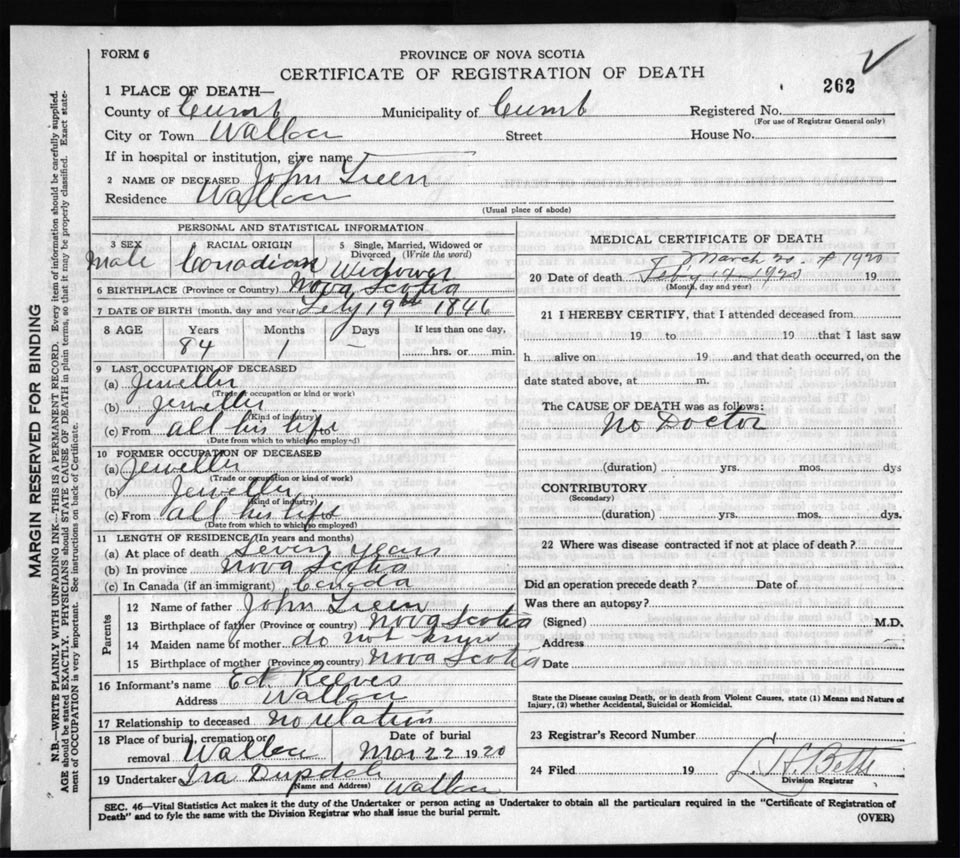 FORM 6
PROVINCE OF NOVA SCOTIA
CERTIFICATE OF REGISTRATION OF DEATH
262
1 PLACE OF DEATH—
County of Cumb Municipality of Cumb Registered No.
(For use of Registrar General only)
City or Town Wallace Street House No.
If in hospital or institution, give name
2 NAME OF DECEASED John Treen
Residence Wallace
(Usual place of abode)
PERSONAL AND STATISTICAL INFORMATION
3 SEX RACIAL ORIGIN 5 Single, Married, Widowed or Divorced (Write the word)
Male Canadian Widower
6 BIRTHPLACE (Province or Country) Nova Scotia
7 DATE OF BIRTH (month, day and year) Feby 19th 1846
8 AGE Years Months Days If less than one day,
84 1 hrs. or min.
9 LAST OCCUPATION OF DECEASED
(a) Jeweller
(Trade or occupation or kind of work)
(b) Jeweller
(Kind of industry)
(c) From all his life to
(Date from which to which so employed)
10 FORMER OCCUPATION OF DECEASED
(a) Jeweller
(Trade or occupation or kind of work)
(b) Jeweller
(Kind of industry)
(c) From all his life
(Date from which to which so employed)
11 LENGTH OF RESIDENCE (In years and months)
(a) At place of death Seven years
(b) In province Nova Scotia
(c) In Canada (if an immigrant) Canada
Parents
12 Name of father John Treen
13 Birthplace of father (Province or country) Nova Scotia
14 Maiden name of mother do not know
15 Birthplace of mother (Province or country) Nova Scotia
16 Informant's name Ed Reeves
Address Wallace
17 Relationship to deceased no relation
18 Place of burial, cremation or removal Date of burial
Wallace Mar 22 1920
19 Undertaker Ira
(Name and Address) Wallace
MEDICAL CERTIFICATE OF DEATH
March 20 1920
20 Date of death Feby 14 1920 19
(Month, day and year)
21 I HEREBY CERTIFY, that I attended deceased from
19 to 19 that I last saw
h alive on 19 and that death occurred, on the
date stated above, at m.
The CAUSE OF DEATH was as follows:
No Doctor
(duration) yrs. mos. dys
CONTRIBUTORY
(Secondary)
(duration) yrs. mos. dys.
22 Where was disease contracted if not at place of death?
Did an operation precede death? Date of
Was there an autopsy?
(Signed) M.D.
Address
Date
State the Disease causing Death, or in death from Violent Causes, state (1) Means and Nature of
Injury, (2) whether Accidental, Suicidal or Homicidal.
23 Registrar's Record Number
24 Filed 19 L. H. Betts
Division Registrar
SEC. 46—Vital Statistics Act makes it the duty of the Undertaker or person acting as Undertaker to obtain all the particulars required in the "Certificate of Registration of
Death" and to fyle the same with the Division Registrar who shall issue the burial permit.
(OVER)
MARGIN RESERVED FOR BINDING
N.B.—WRITE PLAINLY WITH UNFADING INK—THIS IS A PERMANENT RECORD. Every item of information should be carefully supplied.
AGE should be stated EXACTLY. PHYSICIANS should STATE CAUSE OF DEATH in plain terms, so that it may be properly classified. Exact state-
ment of OCCUPATION is very important. See instructions on back of Certificate.